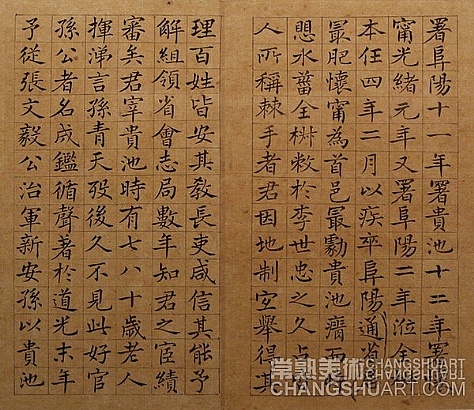 署阜陽十一年署貴池十二年署
甯光緒元年又署阜陽二年涖全
本任四年二月以疾卒阜陽通省
最肥懷甯為首邑最劇貴池瘠
愳水菑全椒敝於李世忠之久占
人所稱棘手者君因地制宜舉得其
理百姓皆安其教長吏咸信其能予
解組領省會志局數年知君之宦績
審矣君宰貴池時有七八十歲老人
揮涕言孫青天歿後久不見此好官
孫公者名成鑑循聲著於道光末年
予從張文毅公治軍新安孫以貴池
常熟美術
CHANGSHUART.COM